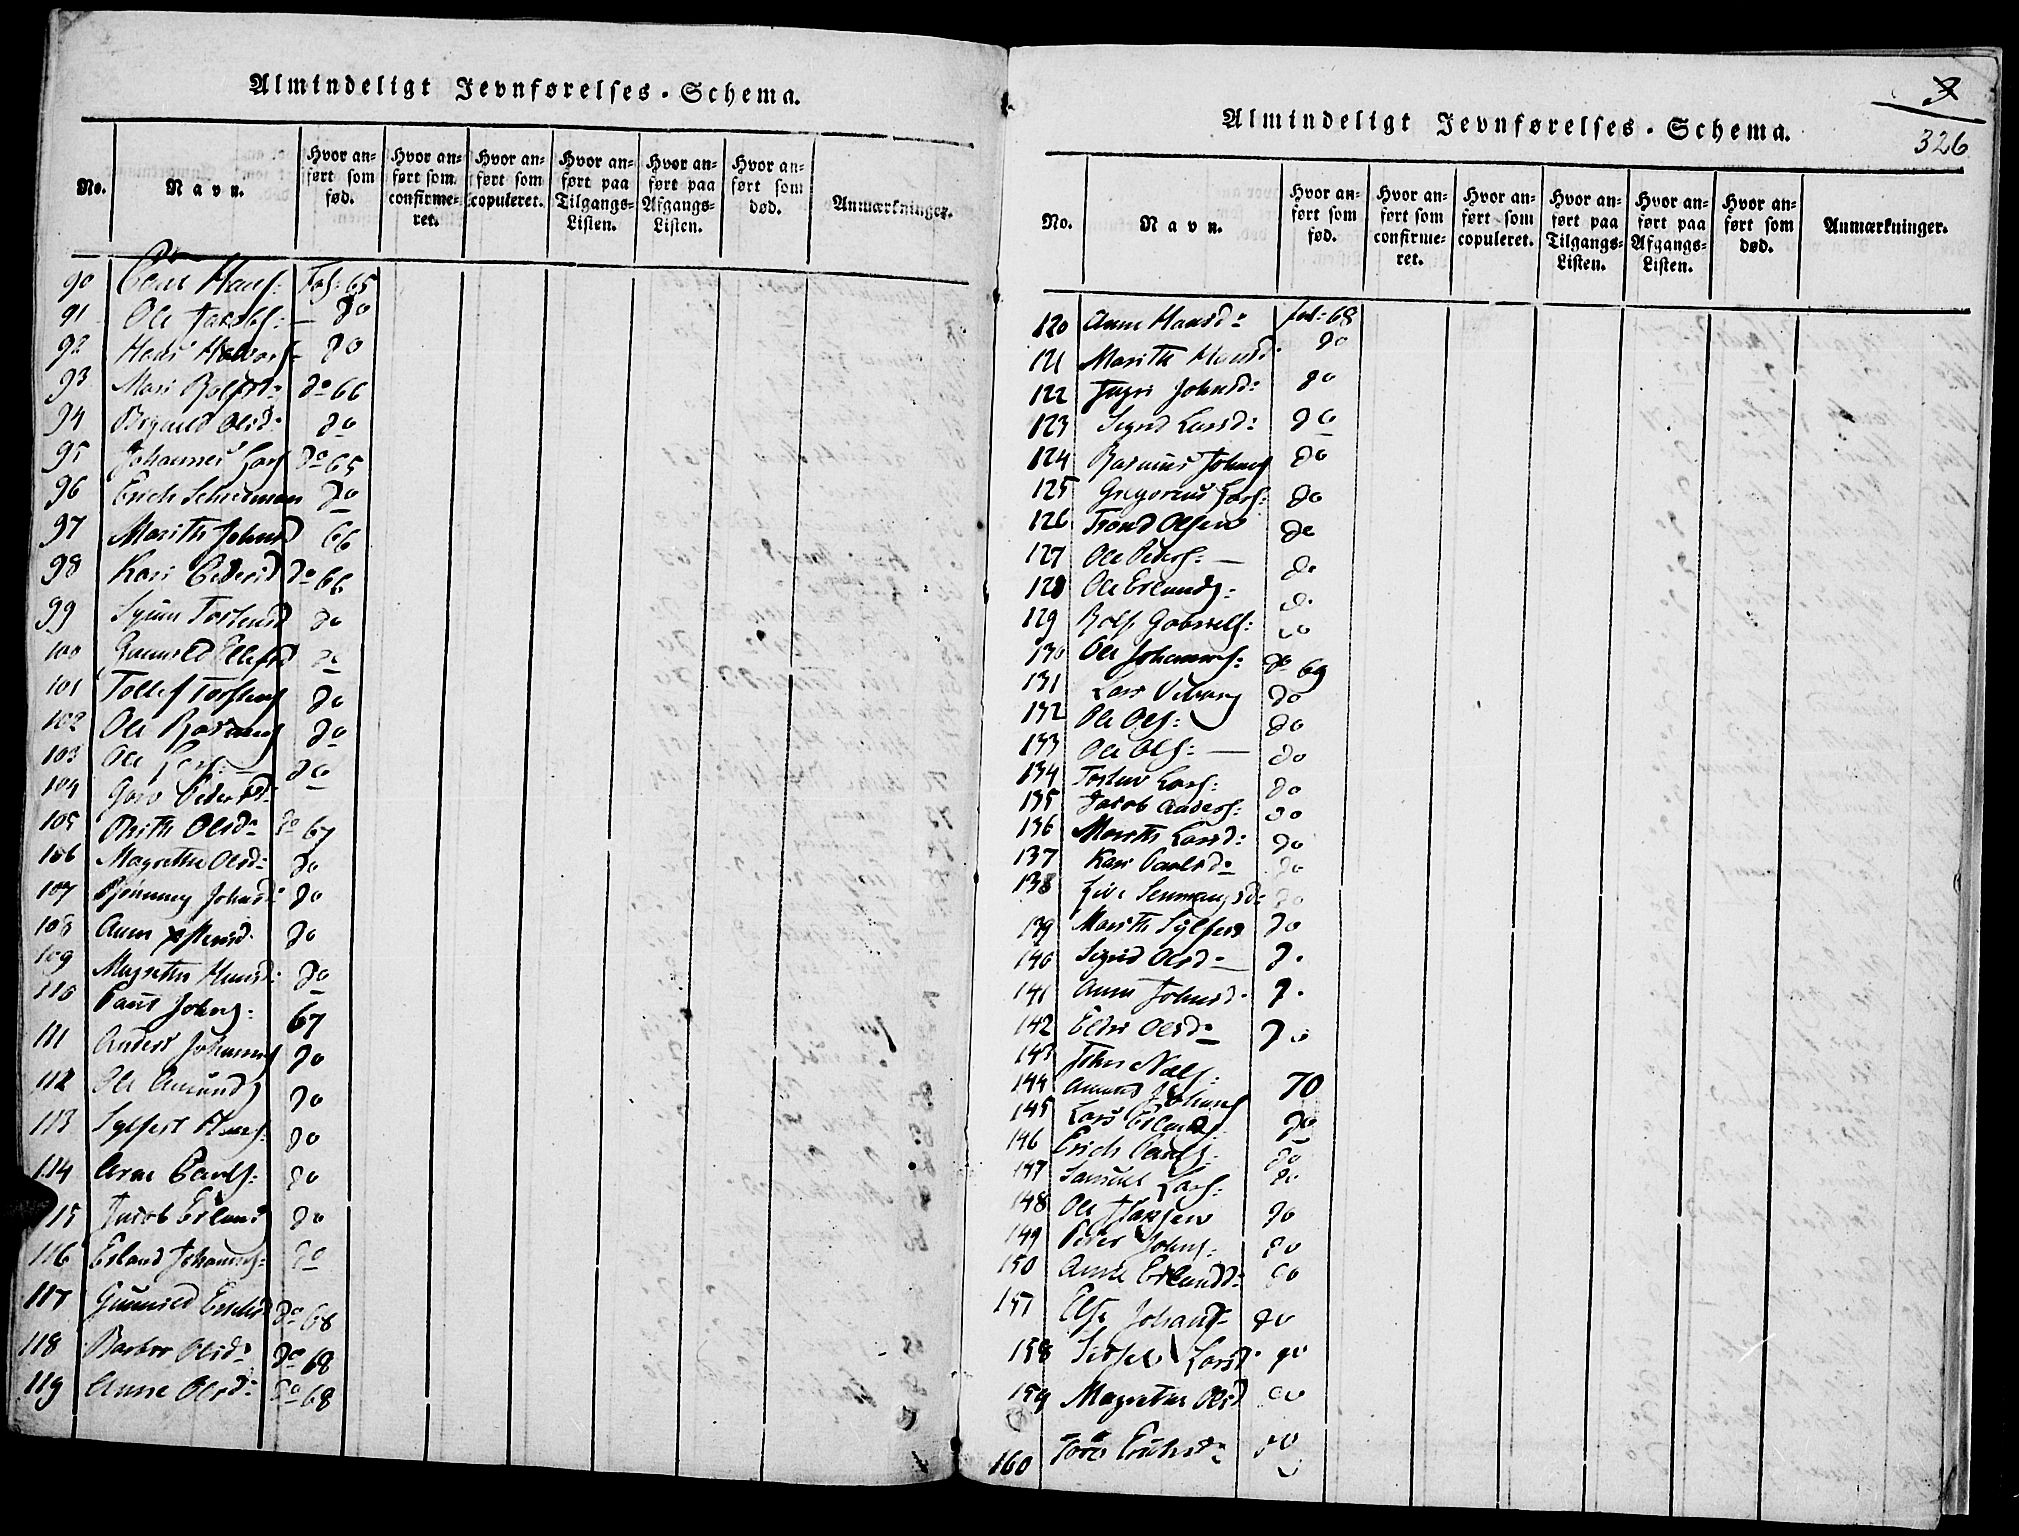 Almindeligt Jevnførelses-Schema.
No. Navn. Hvor anført som fød. Hvor anført som confirmeret. Hvor anført som copuleret. Hvor anført paa Tilgangs-Listen. Hvor anført paa Afgangs-Listen. Hvor anført som død. Anmærkninger.
90 Hans: Fol: 65
91 Ole Jacobs: — do
92 Hans Halvors do
93 Mari Rolfsd: do 66
94 Olsd: do
95 Johannes Lars do 65
96 Erich do
97 Marith Johnsd 66
98 Kari Pedersd do 66
99 Torstensd do
100 Gunnild Ellefsd do
101 Tollef Torstens do
102 Ole Rasmus do
103 Ole Lars: — do
104 Goro Pedersd:
105 Olsd: do 67
106 Magrethe Olsd: do
107 Johnsd: do
108 Anne do
109 Magrethe Hansd: do
110 Paul Johns: 67
111 Anders Johannes do
112 Ole Amunds do
113 Sylfest Hans: do
114 Arne Pauls: do
115 Jacob Erlands do
116 Erland Johannes: do
117 Gunnild Erichsd do 68
118 Barbro Olsd: do 68
119 Anne Olsd: do 68
3
326
Almindeligt Jevnførelses-Schema.
No. Navn. Hvor anført som fød. Hvor anført som confirmeret. Hvor anført som copuleret. Hvor anført paa Tilgangs-Listen. Hvor anført paa Afgangs-Listen. Hvor anført som død. Anmærkninger.
120 Anne Hansd: fol: 68
121 Marith Hansd: do
122 Ingri Johnsd: do
123 Sigrid Larsd: do
124 Rasmus Johns do
125 Gregorius Lars: do
126 Trond Olsen do
127 Ole Peders: — do
128 Ole Erlands: do
129 Rolf Gabriels: do
130 Ole Johannes: do 69
131 Lars do
132 Ole Ols: do
133 Ole Ols: — do
134 Torsten Lars: do
135 Jacob Anders: do
136 Marith Larsd: do
137 Kari Paulsd: do
138 Live do
139 Marith Sylfestd do
140 Sigrid Olsd: — do
141 Anne Johnsd: do
142 Eldri Olsd: do
143 John Nels:
144 Amund Johans 70
145 Lars Erlands do
146 Erich Pauls: do
147 Samuel Lars: do
148 Ole do
149 Peder Johns: do
150 Anne Erlandsd: do
151 Else Johansd: do
158 Sidsel Larsd: do
159 Magrethe Olsd do
160 Toro do